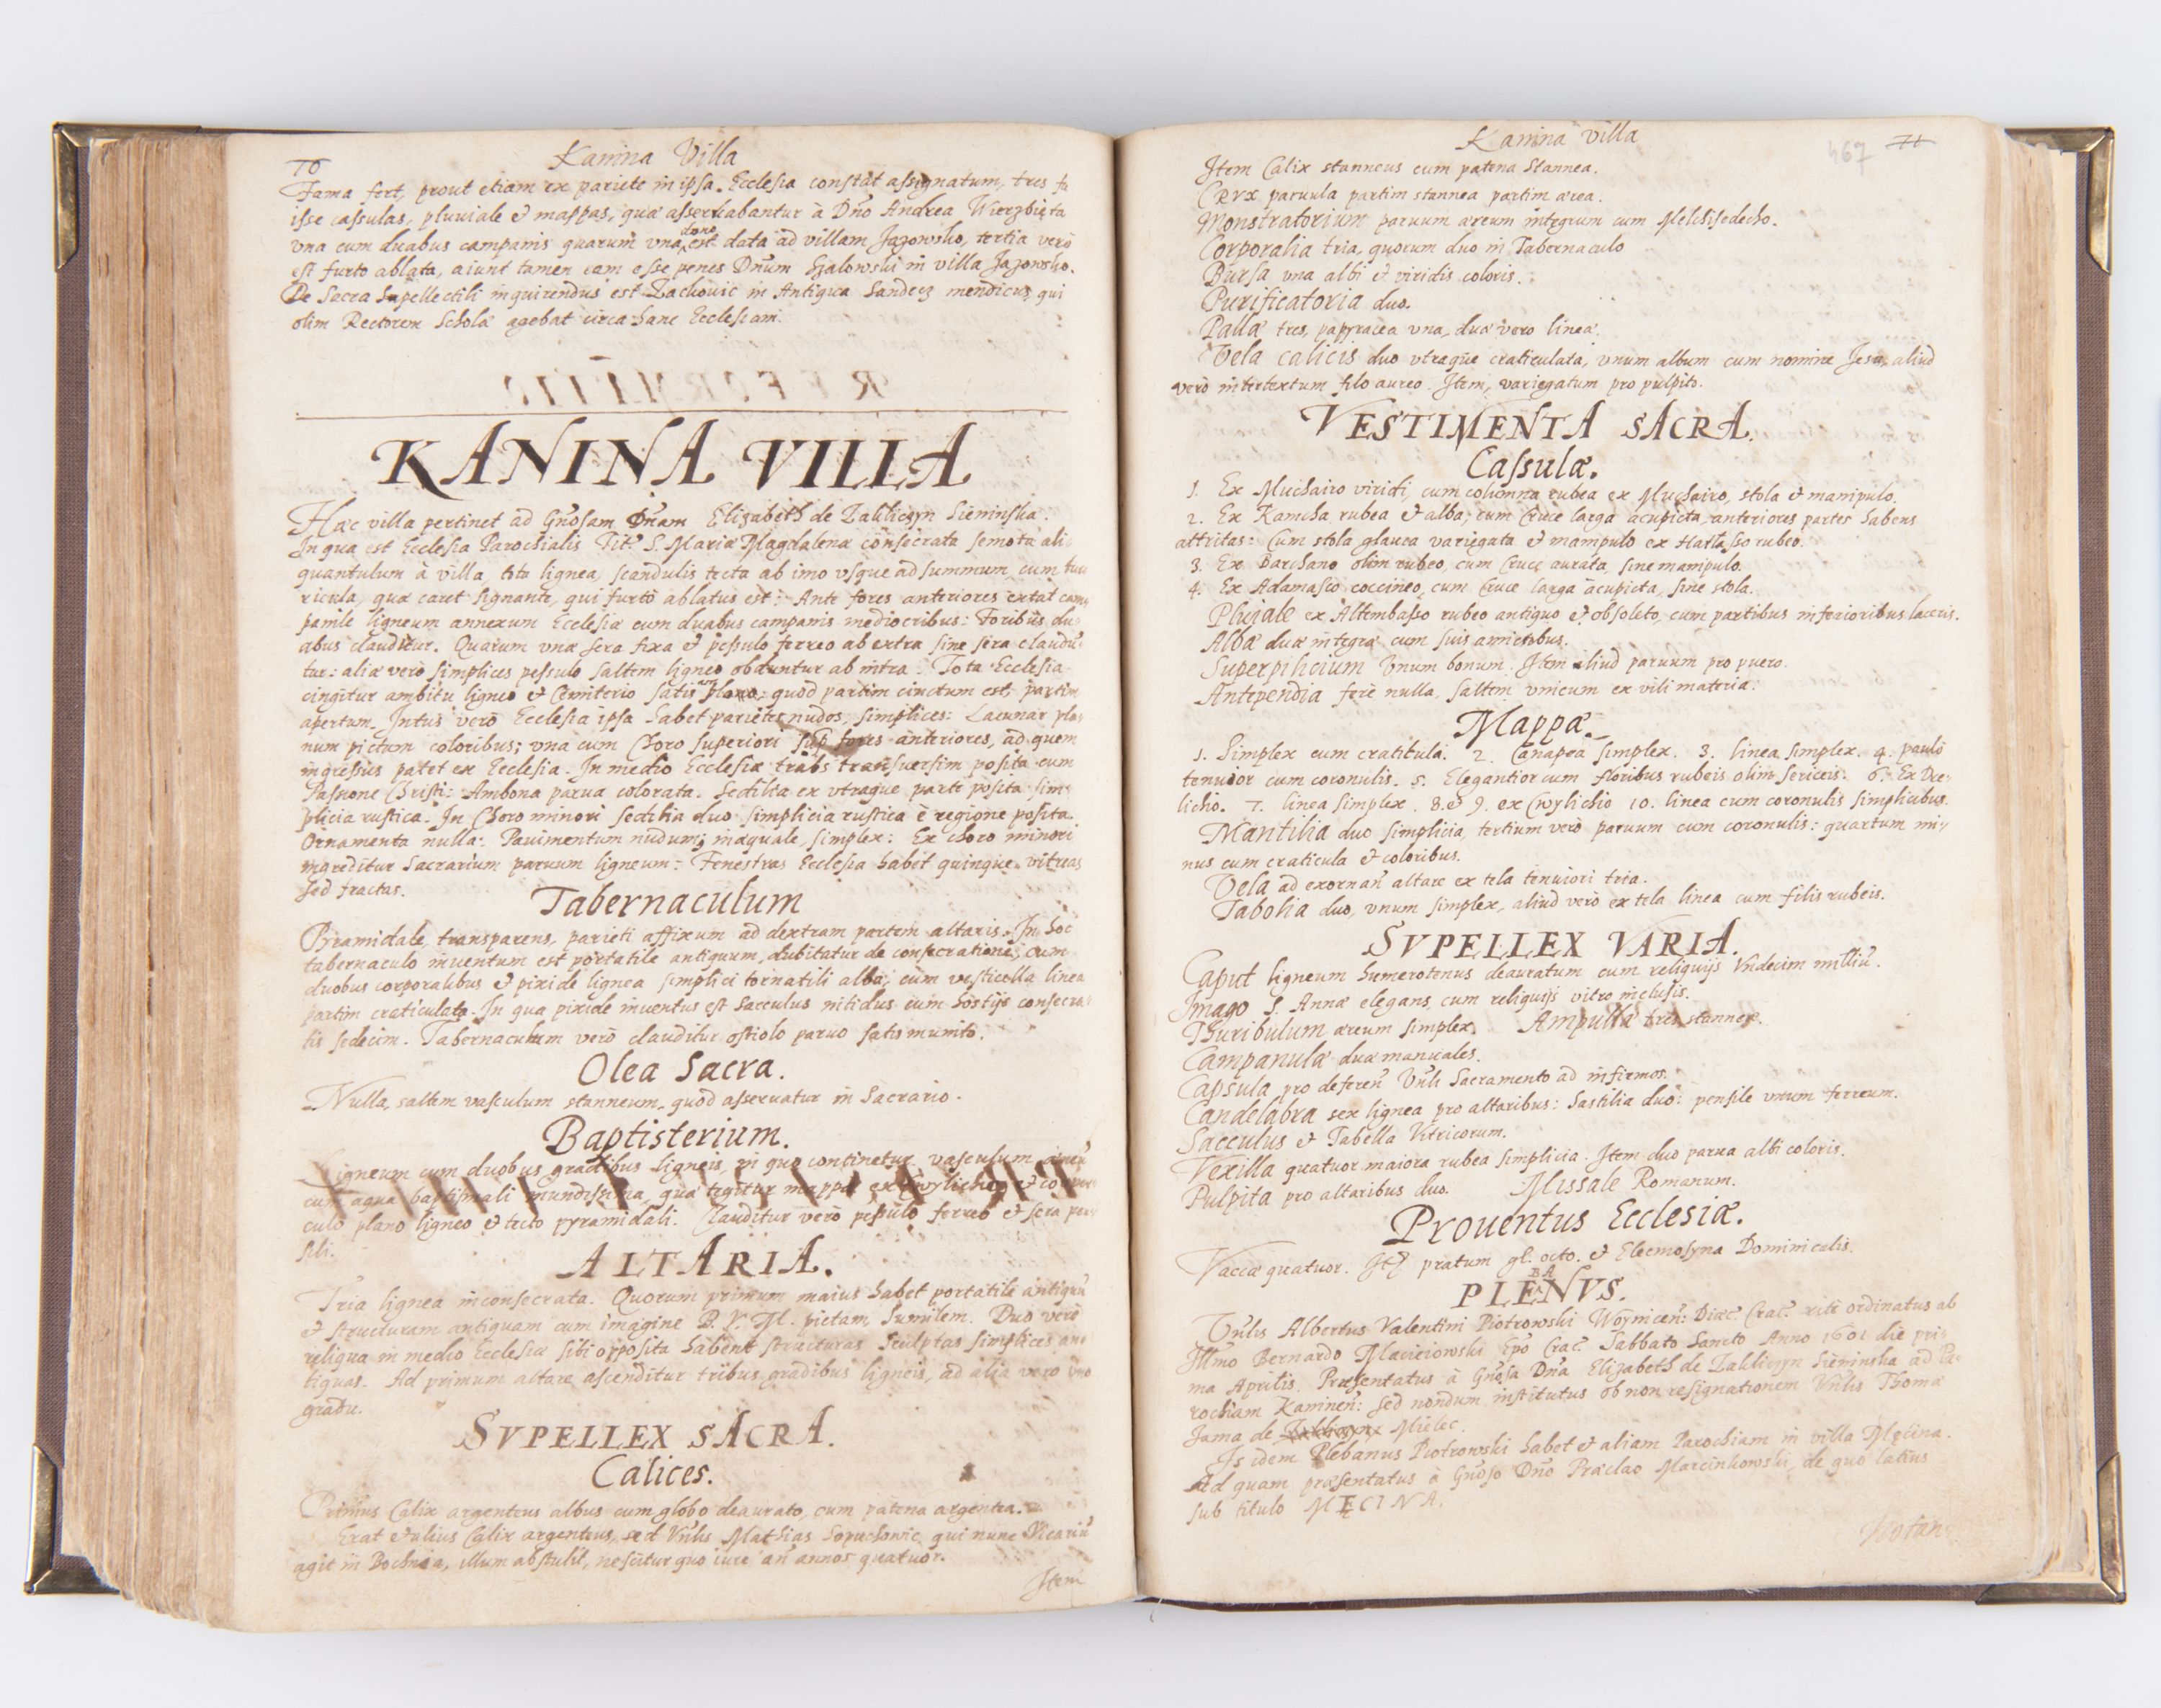 70
Kanina Villa
Fama fert, prout etiam ex pariete in ipsa Ecclesia constat assignatum, tres fu
isse cassulas, pluuiale et mappas, quæ asseruabantur à Dño Andrea Wierzbięta
vna cum duabus campanis quarum vna dono est data ad villam Jazowsko, tertia verò
est furto ablata, aiunt tamen eam esse penes Dñum Szalowski in villa Jazowsko.
De Sacra Supellectili inquirendus est Zachowic in Antiqua Sandecz mendicus, qui
olim Rectorem Scholæ agebat circa hanc Ecclesiam.
KANINA VILLA
Hæc villa pertinet ad Gñosam Dñam Elizabeth de Zakliczyn Sieninska.
In qua est Ecclesia Parochialis Tit. S. Mariæ Magdalenæ consecrata semota ali-
quantulum à villa, tota lignea, scandulis tecta ab imo vsque ad summum, cum tur
ricula, quæ caret signante, qui furto ablatus est: Ante fores anteriores extat cam-
panile ligneum annexum Ecclesiæ cum duabus campanis mediocribus: Foribus du-
abus clauditur. Quarum vna sera fixa et pessulo ferreo ab extra sine sera claudi-
tur: aliæ verò simplices pessulo saltem ligneo obduntur ab intra. Tota Ecclesia
cingitur ambitu ligneo et Cemiterio satis amplo: quod partim cinctum est, partim
apertum. Intus verò Ecclesia ipsa habet parietes nudos, simplices: Lacunar pla-
num pictum coloribus; vna cum Choro superiori sup fores anteriores, ad quem
ingressus patet ex Ecclesia. In medio Ecclesiæ trabs transuersim posita cum
Passione Christi: Ambona parua colorata. Sedilia ex vtraque parte posita sim-
plicia rustica. In Choro minori sedilia duo simplicia rustica è regione posita.
Ornamenta nulla: Pauimentum nudum, inæquale, simplex: Ex choro minori
ingreditur Sacrarium paruum ligneum: Fenestras Ecclesia habet quinque vitreas
sed fractas.
Tabernaculum
Pyramidale, transparens, parieti affixum ad dextram partem altaris. In hoc
tabernaculo inuentum est portatile antiquum, dubitatur de consecratione; cum
duobus corporalibus et pixide lignea simplici tornatili alba, cum vesticella linea
partim craticulata. In qua pixide inuentus est sacculus nitidus cum hostijs consecra
tis sedecim. Tabernaculum verò clauditur ostiolo paruo satis munito.
Olea Sacra.
Nulla, saltem vasculum stanneum, quod asseruatur in Sacrario.
Baptisterium.
Ligneum cum duobus gradibus ligneis, in quo continetur vasculum æneũ
cum aqua baptismali mundissima, quæ tegitur mappa ex Cwylicho et cooper
culo plano ligneo et tecto pyramidali. Clauditur verò pessulo ferreo et sera pen
sili.
ALTARIA.
Tria lignea inconsecrata. Quorum primum maius habet portatile antiquũ
et structuram antiquam cum imagine B. V. M. pictam, humilem. Duo verò
reliqua in medio Ecclesiæ sibi opposita habent structuras sculptas simplices an
tiquas. Ad primum altare ascenditur tribus gradibus ligneis, ad alia vero vno
gradu.
SVPELLEX SACRA.
Calices.
Primus Calix argenteus albus cum globo deaurato, cum patena argentea.
Erat et alius Calix argenteus, sed Vñlis Mathias Sopuchowic, qui nunc Vicariũ
agit in Bochnea, illum abstulit, nescitur quo iure an annos quatuor.
Item
Kanina villa
467 71
Item Calix stanneus cum patena stannea.
CRVX paruula partim stannea partim ærea.
Monstratorium paruum æreum integrum cum Melchisedecho.
Corporalia tria, quorum duo in Tabernaculo
Bursa vna albi et viridis coloris.
Purificatoria duo.
Pallæ tres, papyracea vna, duæ vero lineæ.
Vela calicis duo vtraque craticulata, vnum album cum nomine Jesu, aliud
verò intertextum filo aureo. Item, variegatum pro pulpito.
VESTIMENTA SACRA.
Cassulæ.
1. Ex Muchairo viridi, cum columna rubea ex Muchairo, stola et manipulo.
2. Ex Kamcha rubea et alba, cum Cruce larga acupicta, anteriores partes habens
attritas: Cum stola glauca variegata et manipulo ex Hatlasso rubeo.
3. Ex Barchano olim rubeo, cum Cruce aurata, sine manipulo.
4. Ex Adamasco coccineo, cum Cruce larga acupicta, sine stola.
Pluiale ex Altembasso rubeo antiquo et obsoleto, cum partibus inferioribus laceris.
Albæ duæ integræ cum suis amictibus.
Superpilicium Vnum bonum. Item aliud paruum pro puero.
Antependia fere nulla, saltem vnicum ex vili materia.
Mappæ.
1. Simplex cum craticula. 2. Canapea simplex. 3. linea simplex. 4. paulò
tenuior cum coronulis. 5. Elegantior cum floribus rubeis olim sericeis. 6. Ex Dre-
licho. 7. linea simplex. 8. et 9. ex Cwylicho 10. linea cum coronulis simplicibus.
Mantilia duo simplicia, tertium verò paruum cum coronulis: quartum mi-
nus cum craticula et coloribus.
Vela ad exornañ altare ex tela tenuiori tria.
Tabolia duo, vnum simplex, aliud verò ex tela linea cum filis rubeis.
SVPELLEX VARIA.
Caput ligneum humerotenus deauratum cum reliquijs Vndecim milliũ.
Imago S. Annæ elegans, cum reliquijs vitro inclusis.
Thuribulum æreum simplex. Ampullæ tres stanneæ.
Campanulæ duæ manuales.
Capsula pro deferen̄ Vñli Sacramento ad infirmos.
Candelabra sex lignea pro altaribus: hastilia duo: pensile vnum ferreum.
Sacculus et Tabella Vitricorum.
Vexilla quatuor maiora rubea simplicia. Item duo parua albi coloris.
Pulpita pro altaribus duo. Missale Romanum.
Prouentus Ecclesiæ.
Vaccæ quatuor. pratum gl. octo. et Eleemosyna Dominicalis.
BA
PLENVS.
Vñlis Albertus Valentini Piotrowski Woynicen̄: Diæc. Crac. ritè ordinatus ab
Illmo Bernardo Macieiowski Epõ Crac. Sabbato Sancto Anno 1601 die pri-
ma Aprilis. Præsentatus à Gñosa Dña Elizabeth de Zakliczyn Sieninska ad Pa-
rochiam Kaninen̄: sed nondum institutus ob non resignationem Vñlis Thomæ
Jama de Mielec.
Is idem Plebanus Piotrowski habet et aliam Parochiam in villa Męcina.
Ad quam præsentatus à Gñoso Dño Præclao Marcinkowski, de quo latius
sub titulo MĘCINA.